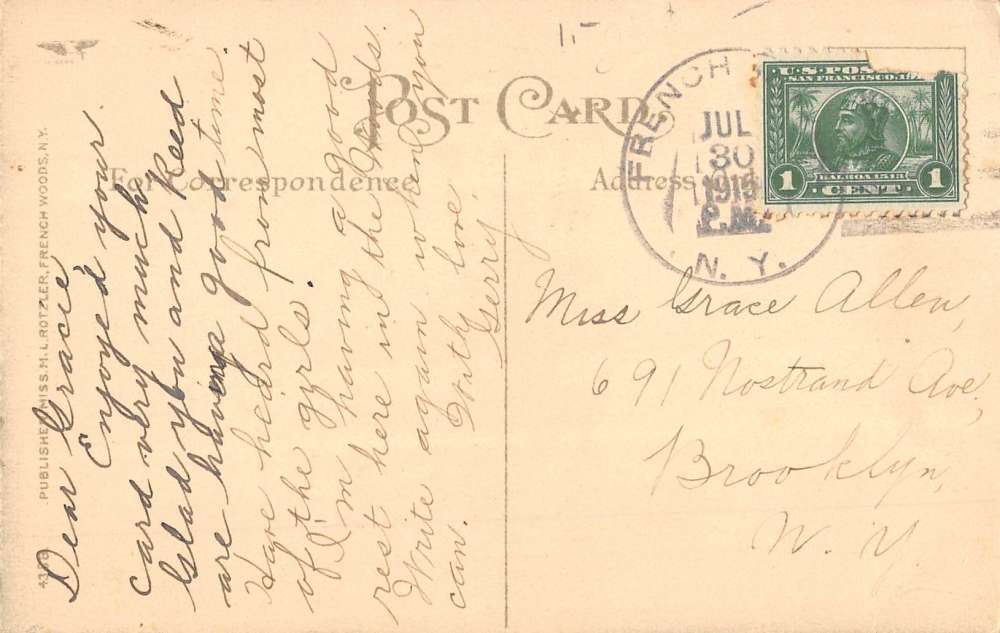 POST CARD
For Correspondence
Address
FRENCH
JUL
30
1915
P.M.
N. Y.
U.S. POS
SAN FRANCISCO, 19
BALBOA 1513
1 CENT 1
Dear Gracie
Enjoyed your
card very much
Glad you and Reed
are having good time
Have heard from most
of the girls.
I'm having a good
rest here in the woods.
Write again when you
can.
With love
Gerry.
Miss Grace Allen,
691 Nostrand Ave,
Brooklyn,
N. Y.
PUBLISHER MISS. M. L. ROTZLER, FRENCH WOODS, N.Y.